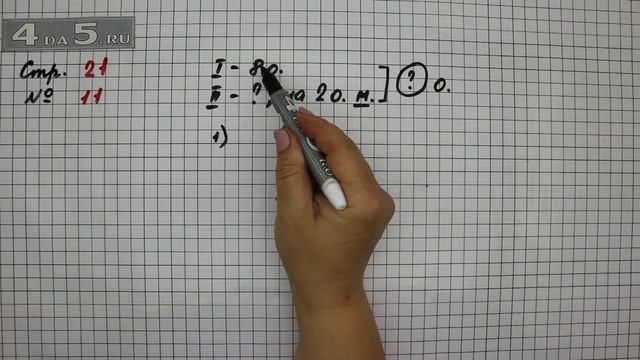 4 DA 5.RU
Стр. 21
№ 11
I - 8 о.
II - ?, на 2 о. м. ] ? о.
1)